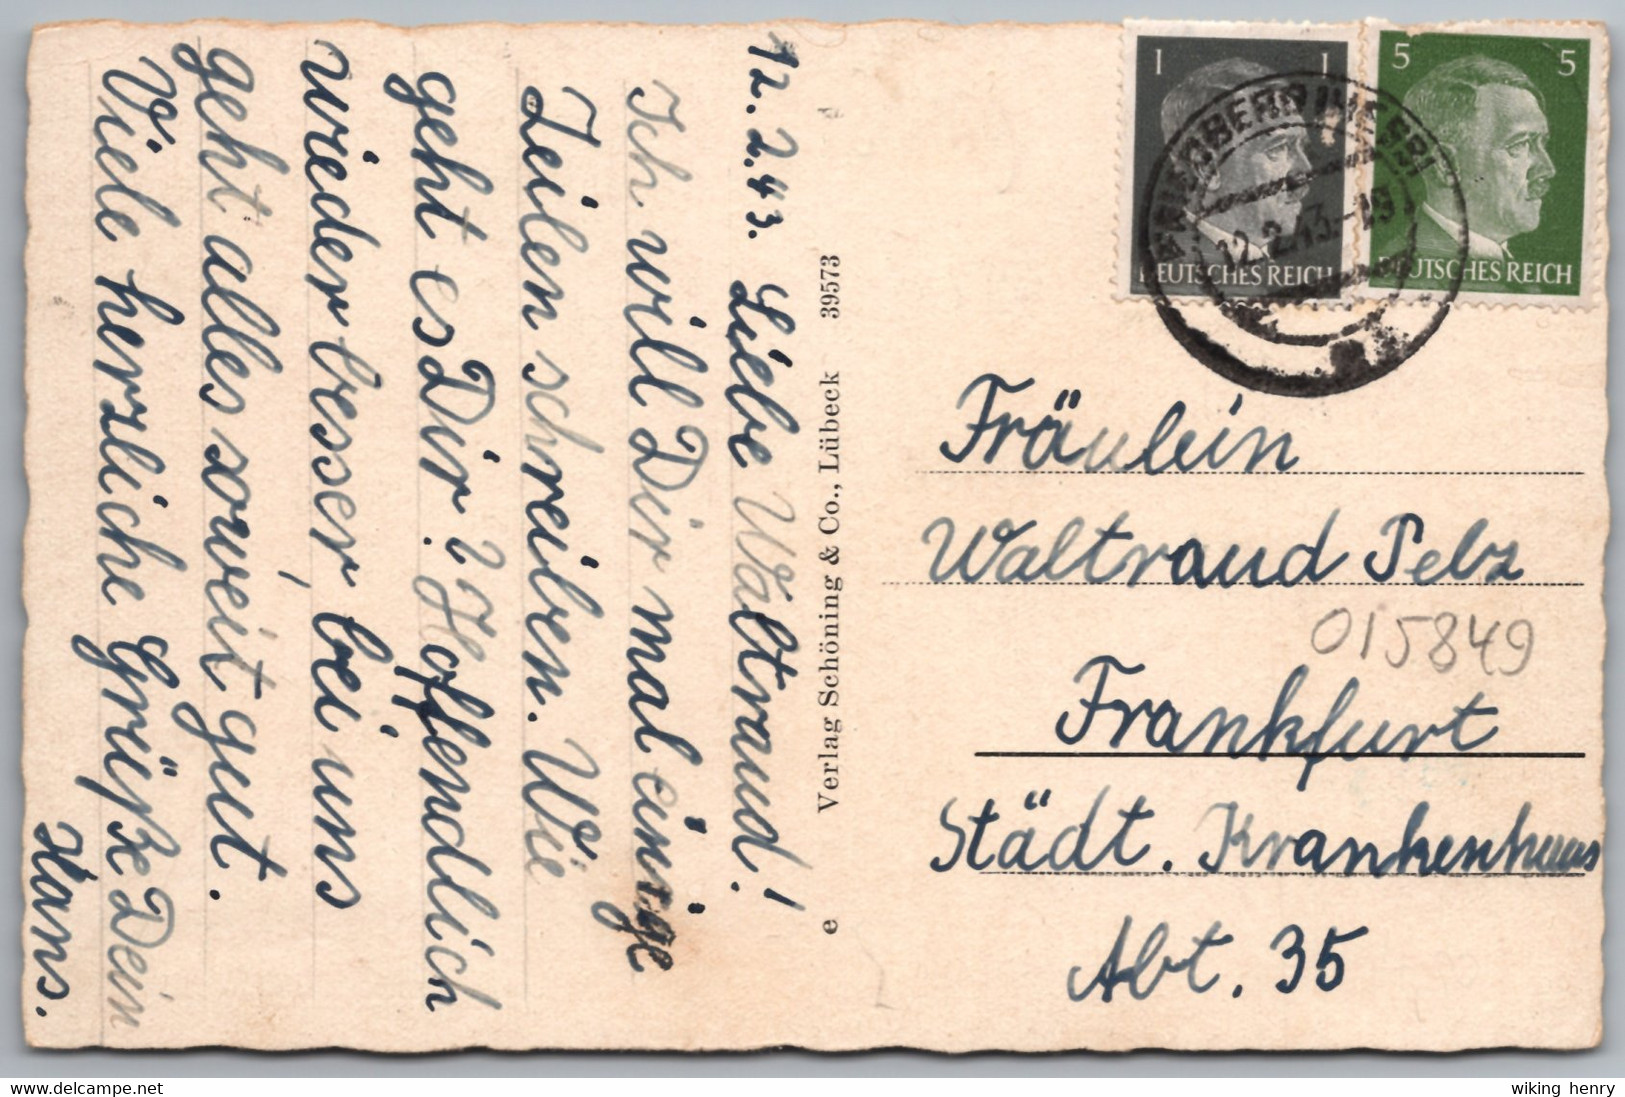 12.2.43. Liebe Waltraud!
Ich will Dir mal einige
Zeilen schreiben. Wie
geht es Dir? Hoffendlich
wieder besser, bei uns
geht alles soweit gut.
Viele herzliche Grüße Dein
Hans.
e Verlag Schöning & Co., Lübeck 39573 d
1 1
DEUTSCHES REICH
5 5
DEUTSCHES REICH
12.2.43.-19
Fräulein
Waltraud Pelz
015849
Frankfurt
Städt. Krankenhaus
Abt. 35
wiking henry